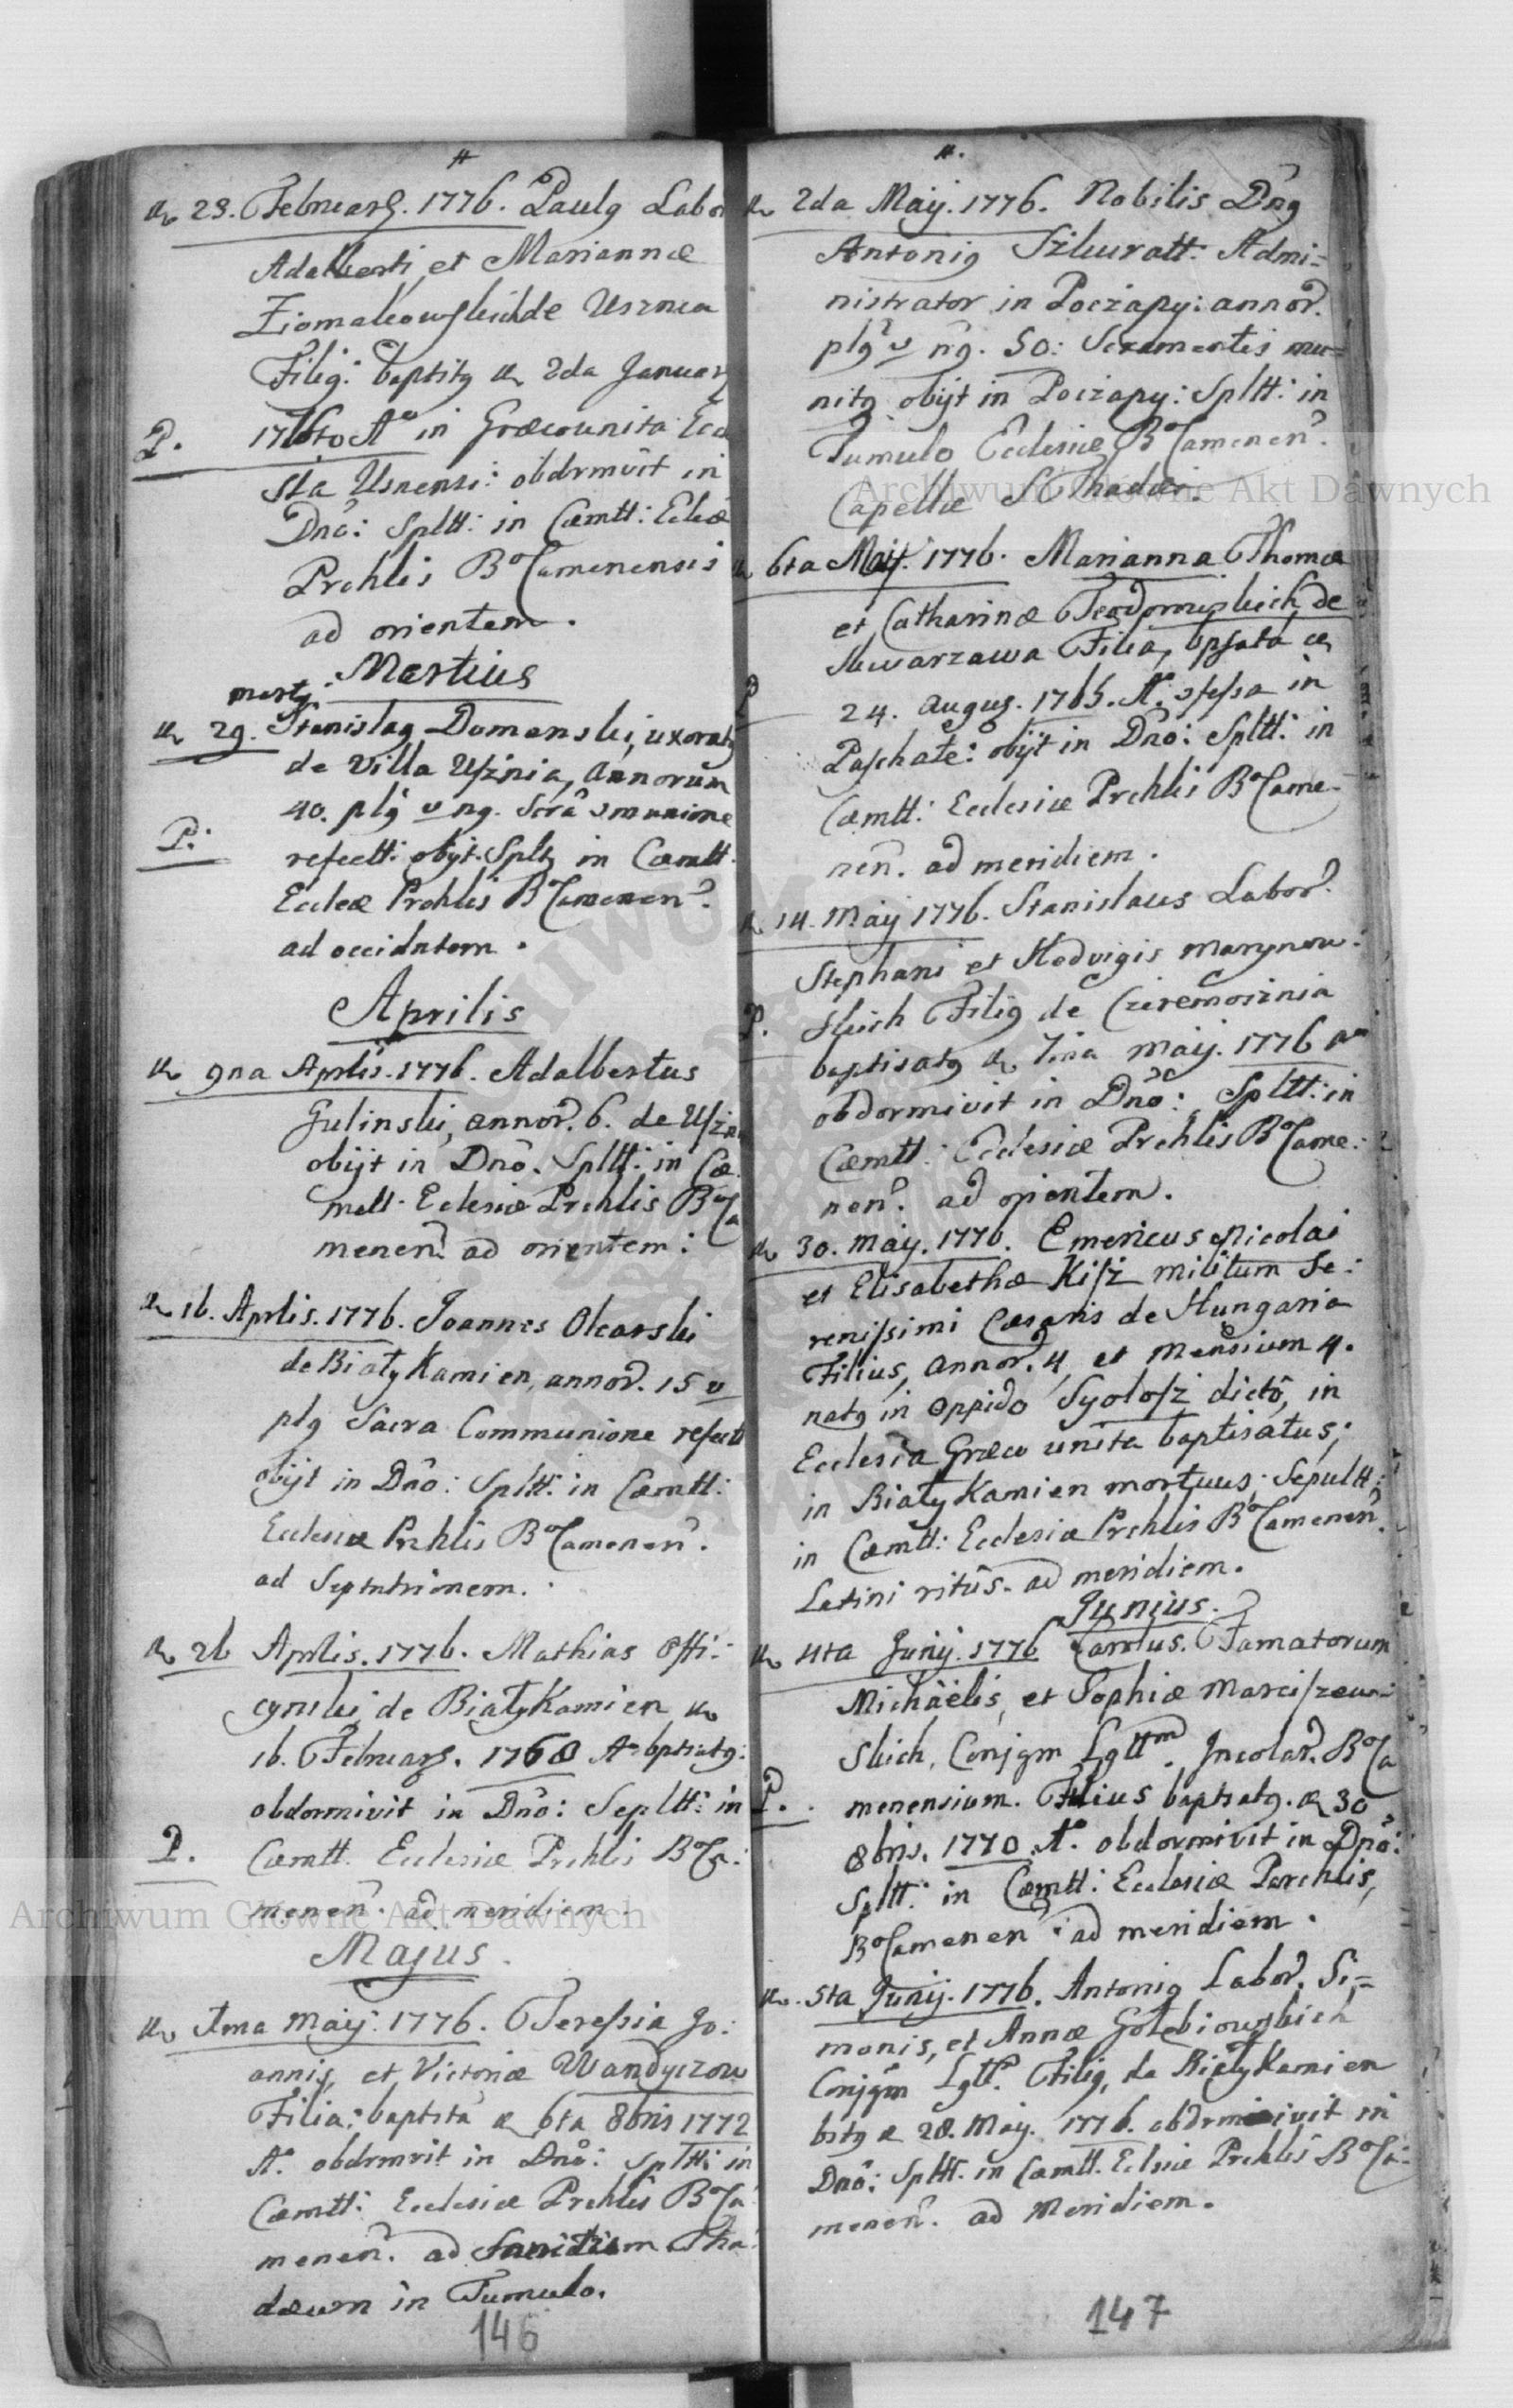 #
23. Februarij. 1776. Paulg Labor
Adalberti et Mariannæ
Ziomakowskich de Usznia
Filig: baptitg 2da Januarij
P. A° in Græcounita Eccl
sia Usnensi: obdrmivit in
Dnô: Spltt: in Cæmtt: Eclæ
Prchlis B°Camenensis
ad orientem.
Martius
martij
29. Stanislag Domanski, uxoratg
de Villa Uſznia, Annorum
40. plg v ng. Scrâ
P: refectt: obijt. Spltg in Cæmtt.
Eccleæ Prchlis B°Camenen.
ad occidntem.
Aprilis
9na Aprlis. 1776. Adalbertus
Gulinski, annor. 6. de Uſzn
obijt in Dnô. Spltt: in Cæ
mett. Eclesiæ Prchlis B°Ca
menen. ad orientem:
16. Aprlis. 1776. Joannes Okarski
de Biały Kamien, annor. 15 v
plg Sacra Communione refectt
obijt in Dnô: Spltt: in Cæmtt:
Ecclesiæ Prchlis B°Camenen.
ad Septntrionem.
26 Aprlis. 1776. Mathias Offi:
cynski de Biały Kamien
16. Februarij. 1768 A° bptiatg:
obdormivit in Dnô: Sepltt: in
P. Cæmtt. Ecclesiæ Prchlis B°Ca:
menen. ad meridiem.
Archiwum Główne Akt Dawnych
Majus.
1ma Maij. 1776. Tereſsia Jo:
annis, et Victoriæ Wandyczow
Filia: baptita 6ta 8bris 1772
A°. obdrmvit in Dnô: Spltt: in
Cæmtt: Ecclesiæ Prchlis B°Ca
menen. ad Tha
dæum in Tumulo.
146
#.
2da Maij. 1776. Nobilis Dng
Antonig Szkuratt. Admi=
nistrator in Poczapy: annor.
plg v ng. 50: Scramentis mu=
nitg obijt in Poczapy: Spltt: in
Tumulo Ecclesiæ B°Camenen.
Capellæ S Thadæi.
Archiwum Główne Akt Dawnych
6ta Maij. 1776. Marianna Thomæ
et Catharinæ de
Skwarzawa Filia, bpsata
P 24. Augus. 1765. A°. in
Paschate: obijt in Dnô: Spltt: in
Cæmtt: Ecclesiæ Prchlis B°Came-
nen. ad meridiem.
14. Maij 1776. Stanislaus Labor.
Stephani et Hedvigis Marynow:
P. skich Filig de Czeremosznia
baptisatg 7ma Maij. 1776 A°
obdormivit in Dnô: Spltt: in
Cæmtt: Ecclesiæ Prchlis B°Came:
nen. ad orientem.
30. Maij. 1776. Emericus Nicolai
et Elisabethæ Kiſz militum Se:
reniſsimi Cæsaris de Hungaria
Filius, annor. 4, et Mensium 4.
natg in oppido Syoloſz dictô, in
Ecclesia Græco unita baptisatus;
in Biały Kamien mortuus; Sepultt:
in Cæmtt: Ecclesiæ Prchlis B°Camenen.
Latini ritûs. ad meridiem.
Junius.
4ta Junij. 1776 Carolus. Famatorum
Michäelis, et Sophiæ Marciſzew:
skich, Conjgm Lgttm. Incolar. B°Ca
P. menensium. Filius baptiatg. 30
8bris. 1770. A°. obdormivit in Dnô:
Spltt: in Cæmtt: Ecclesiæ Parchlis,
B°Camenen: ad meridiem.
5ta Junij. 1776. Antonig Labor. Si,=
monis, et Annæ Gołębiowskich
Conjgm Lgtt. Filig, de Biały Kamien
bitg 28. Maij. 1776. obdrmivit in
Dnô: Spltt. in Cæmtt. Eclsiæ Prchlis B°Ca:
menen. ad Meridiem.
147